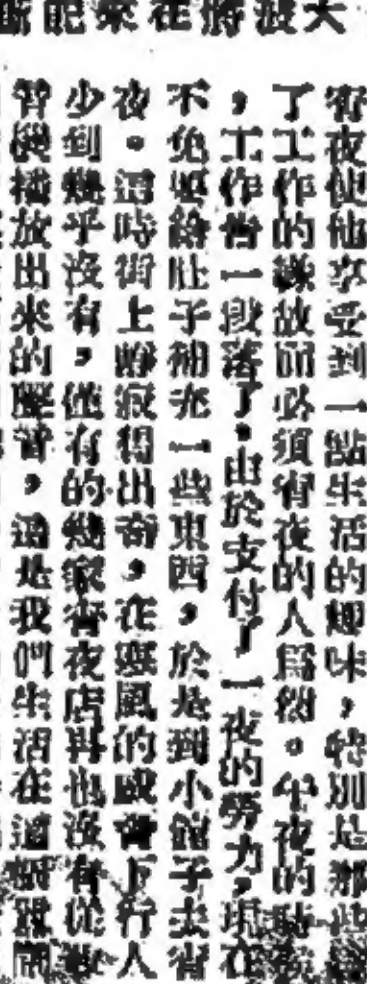 大波將在來
宵夜使他享受到一點生活的趣味，特別是那些
了工作的緣故而必須宵夜的人爲然。午夜的
，工作告一段落了，由於支付了一夜的勞力，現在
不免要給肚子補充一些東西，於是到小館子去宵
夜。這時街上靜寂得出奇，在寒風的威脅下行人
少到幾乎沒有，僅有的幾家宵夜店再也沒有從
機播放出來的聲音，這是我們生活在這個